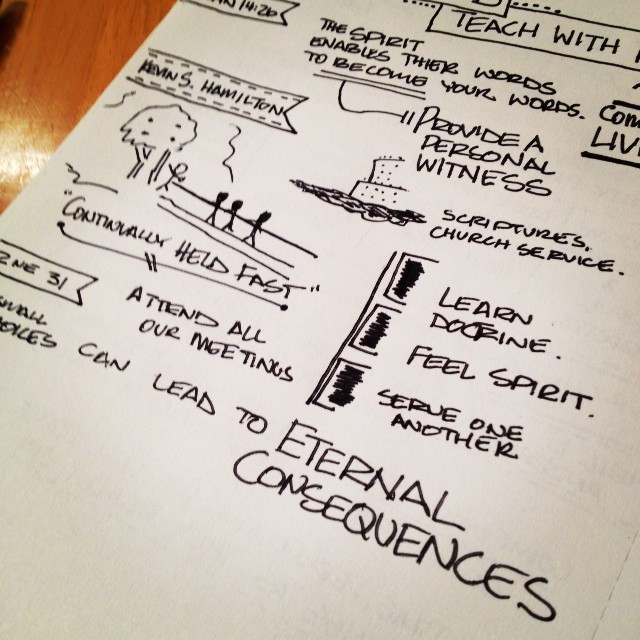 14:26
TEACH WITH
THE SPIRIT
ENABLES THEIR WORDS
TO BECOME YOUR WORDS.
COM
LIVI
KEVIN S. HAMILTON
PROVIDE A
PERSONAL
WITNESS
SCRIPTURES,
CHURCH SERVICE.
"CONTINUALLY HELD FAST"
ATTEND ALL
OUR MEETINGS
LEARN
DOCTRINE.
FEEL SPIRIT.
SERVE ONE
ANOTHER
2 NE 31
SMALL
CAN LEAD TO ETERNAL
CONSEQUENCES